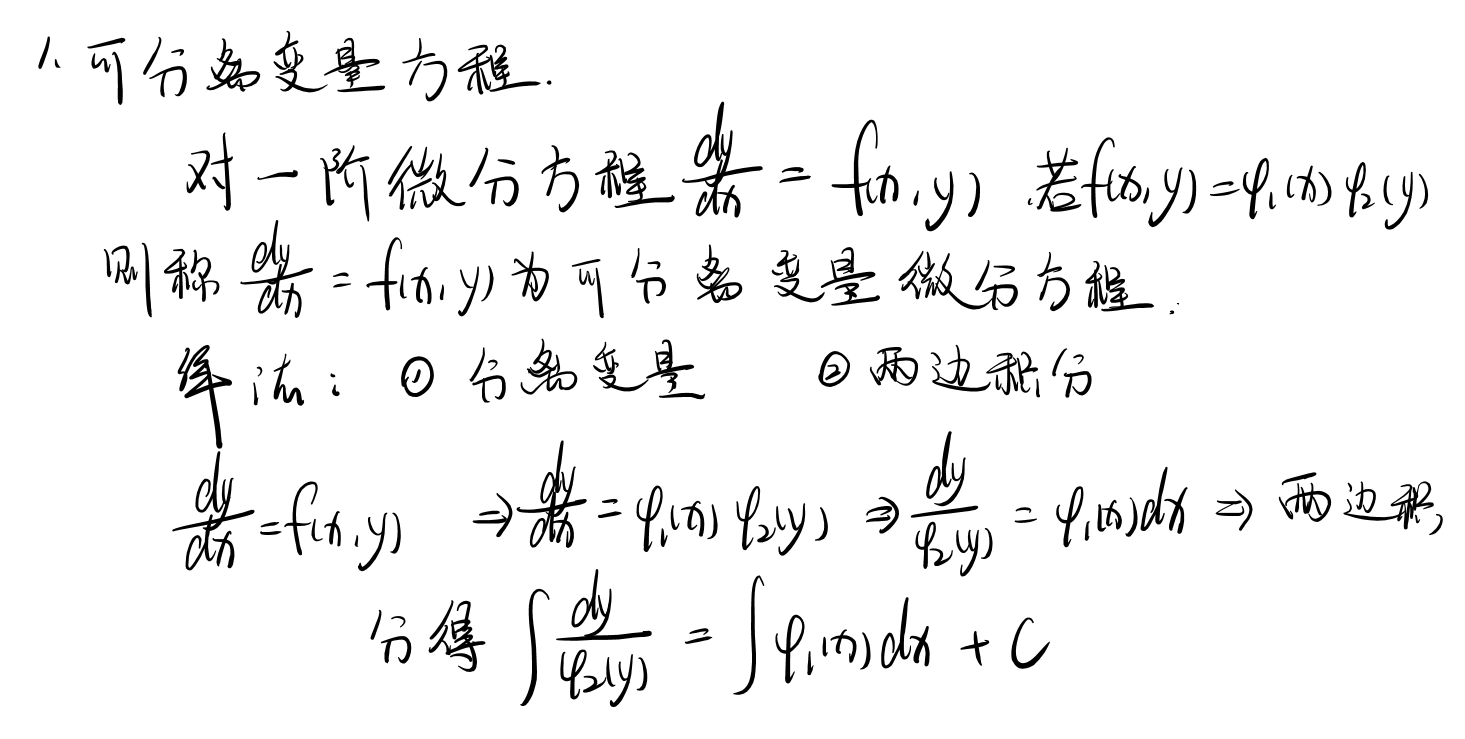 1. 可分离变量方程.
对一阶微分方程 dy/dx = f(x, y) 若 f(x, y) = φ₁(x) φ₂(y)
则称 dy/dx = f(x, y) 为可分离变量微分方程.
解法: ① 分离变量 ② 两边积分
dy/dx = f(x, y) ⇒ dy/dx = φ₁(x) φ₂(y) ⇒ dy/φ₂(y) = φ₁(x)dx ⇒ 两边积
分得 ∫ dy/φ₂(y) = ∫ φ₁(x)dx + C